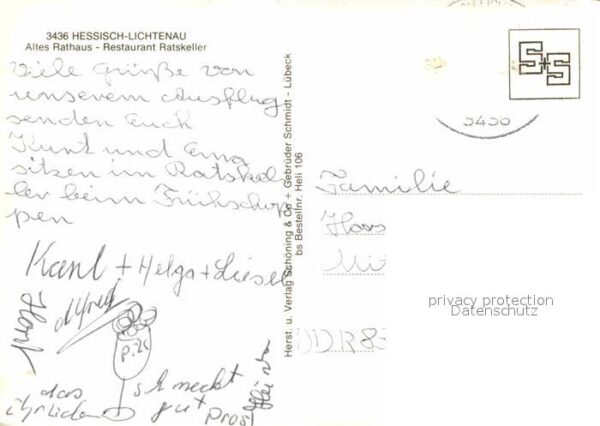 3436 HESSISCH-LICHTENAU
Altes Rathaus - Restaurant Ratskeller
Viele Grüße von
unserem Ausflug
senden Euch
Kurt und Erna
sitzen im Ratskel
ler beim Frühschop
pen
Karl + Helga + Liesel
Alfred
Horst
P.2c
das
schmeckt
gut
Prost
Herst. u. Verlag Schöning & Co + Gebrüder Schmidt - Lübeck
bs Bestellnr. Heli 106
S+S
3436
Familie
Haas
DDR 83
privacy protection
Datenschutz